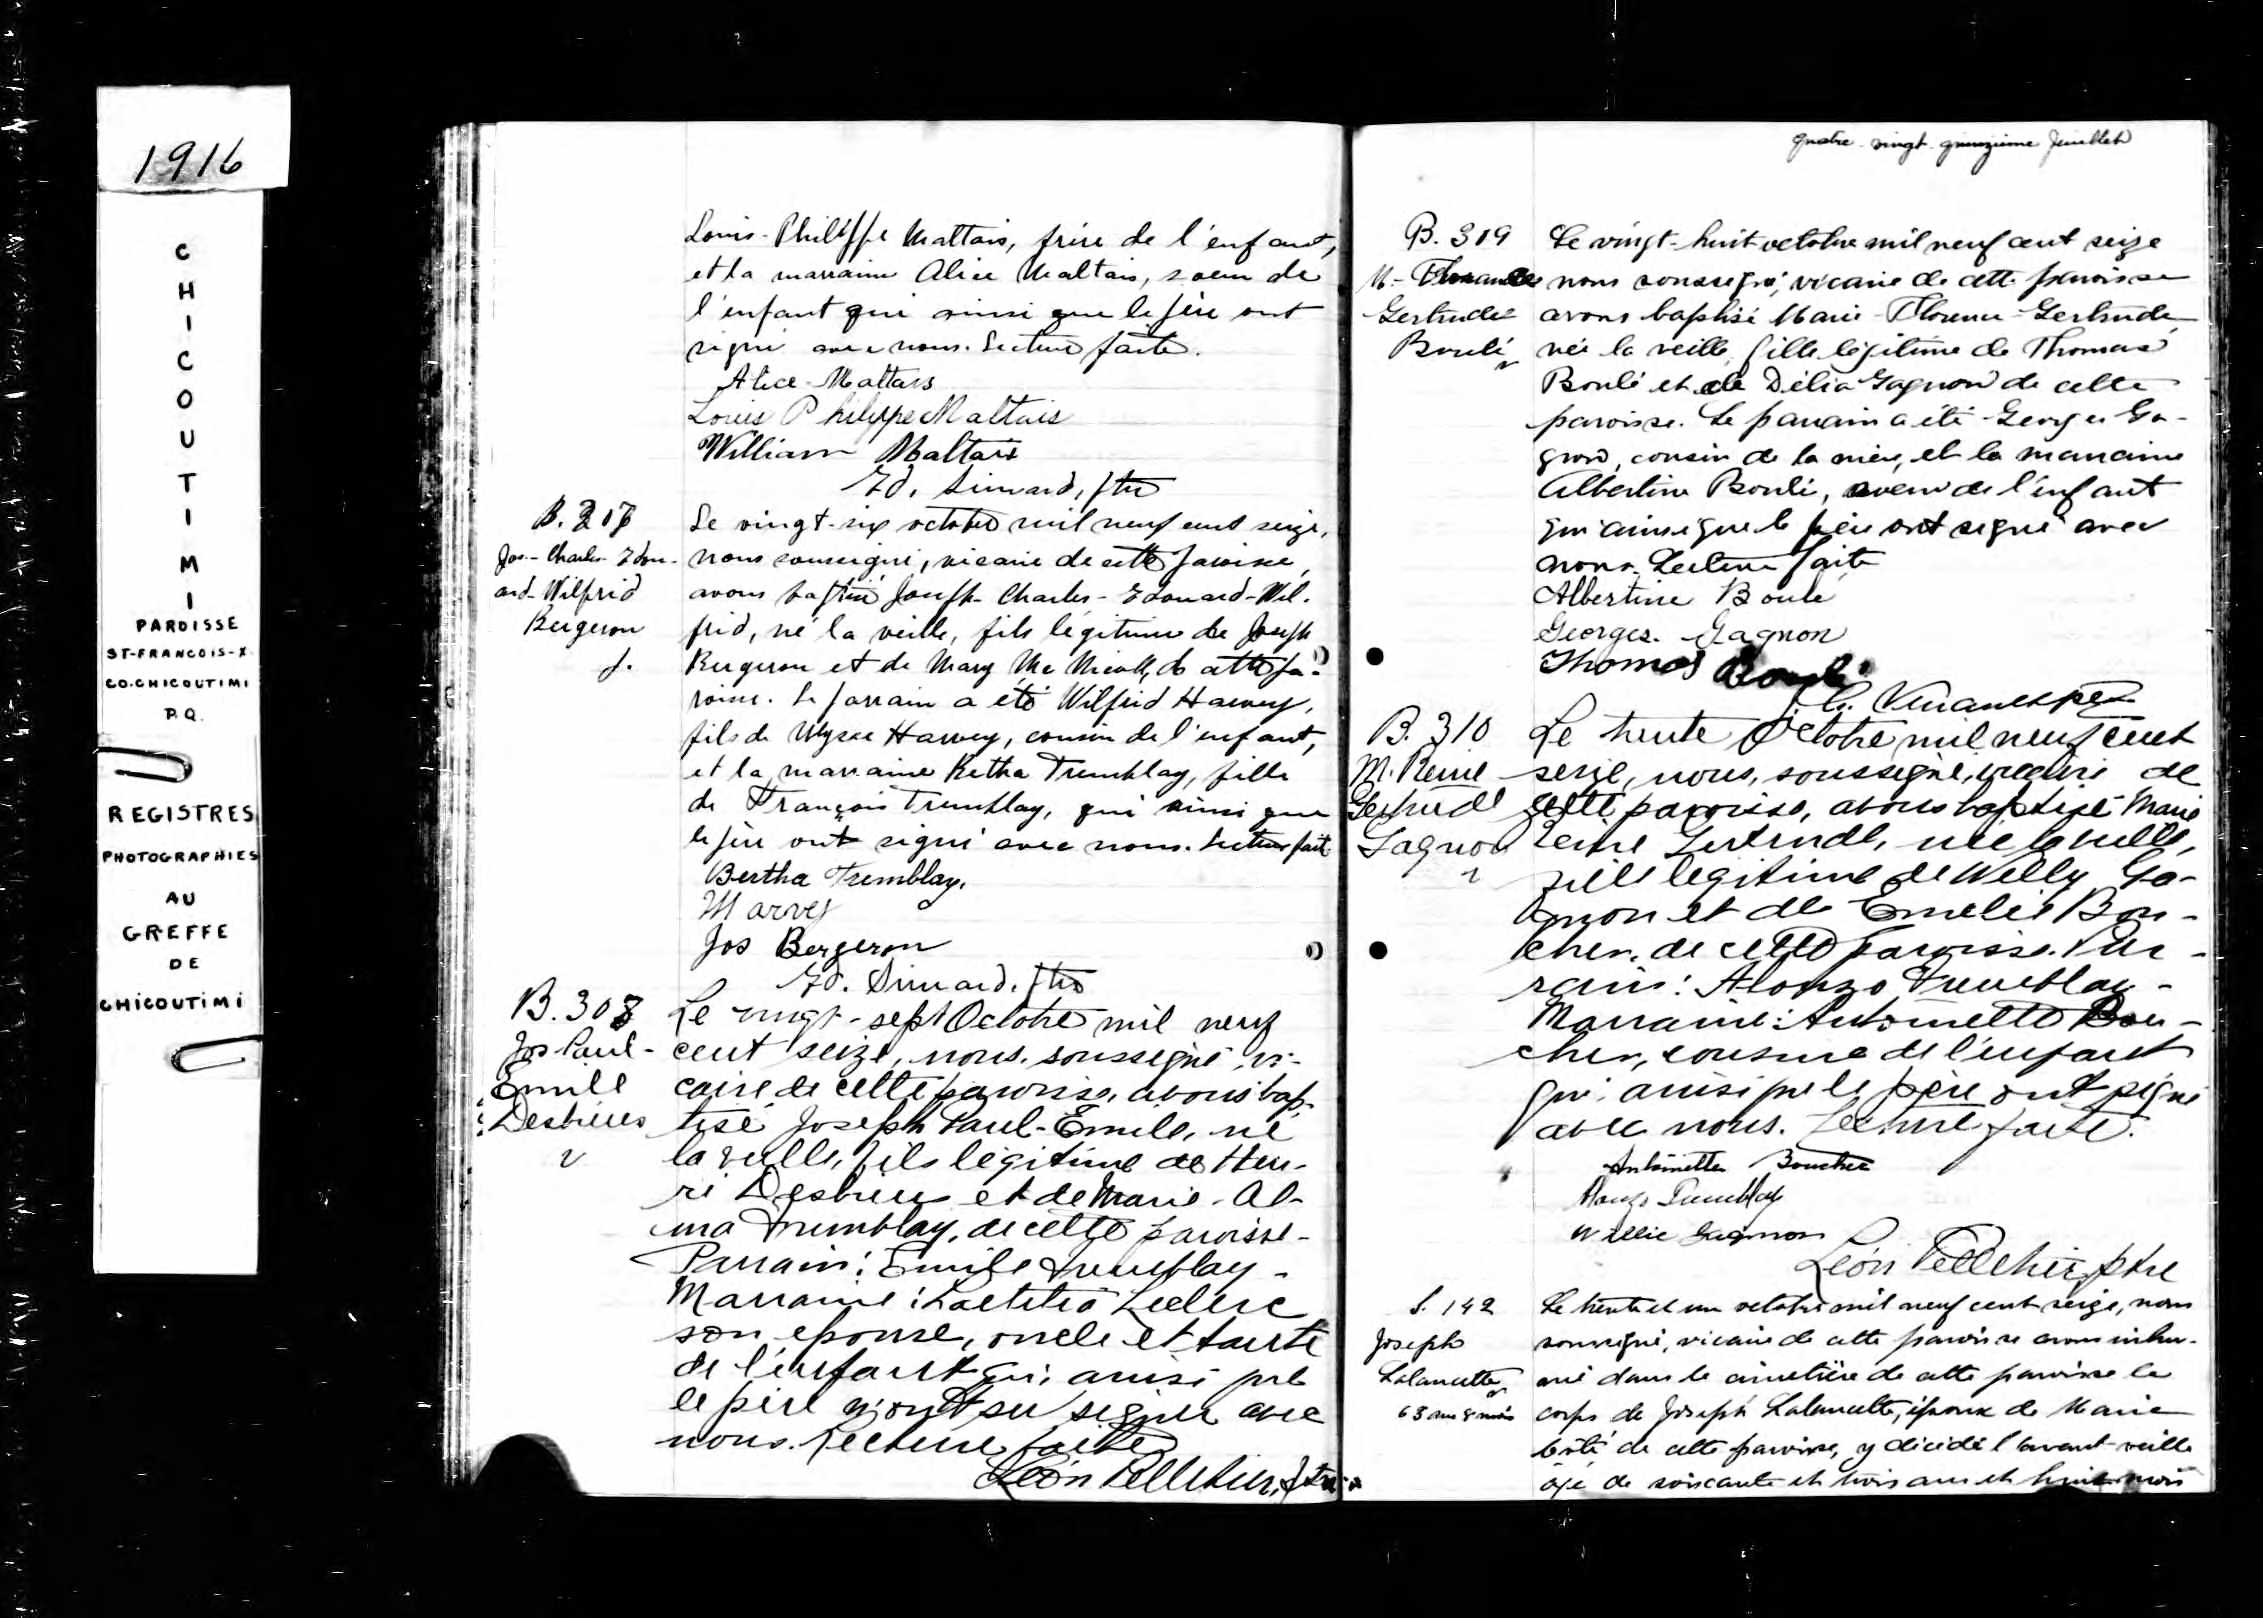 1916
CHICOUTIMI
PAROISSE
ST-FRANCOIS-X.
CO.CHICOUTIMI
P.Q.
REGISTRES
PHOTOGRAPHIES
AU
GREFFE
DE
CHICOUTIMI
Louis-Philippe Maltais, frère de l'enfant,
et la marraine Alice Maltais, soeur de
l'enfant qui ainsi que le père ont
signé avec nous. Lecture faite.
Alice Maltais
Louis Philippe Maltais
William Maltais
Ed. Simard, ptre
B. 307
Jos-Charles-Edou-
ard-Wilfrid
Bergeron
Le vingt-six octobre mil neuf cent seize,
nous soussigné, vicaire de cette paroisse,
avons baptisé Joseph-Charles-Edouard-Wil-
frid, né la veille, fils légitime de Joseph
Bergeron et de Mary Mc Nicoll, de cette pa-
roisse. Le parrain a été Wilfrid Harvey,
fils de Ulysse Harvey, cousin de l'enfant,
et la marraine Betha Tremblay, fille
de François Tremblay, qui ainsi que
le père ont signé avec nous. Lecture faite
Bertha Tremblay.
Jos Bergeron
Ed. Simard, ptre
B. 308
Jos-Paul-
Emile
Desbiens
Le vingt-sept Octobre mil neuf
cent seize, nous, soussigné, vi-
caire de cette paroisse, avons bap-
tisé Joseph Paul-Emile, né
la veille, fils légitime de Hen-
ri Desbiens et de Marie-Al-
ma Tremblay, de cette paroisse-
Parrain: Emile Tremblay-
Marraine: Laetitia Leclerc
son épouse, oncle et tante
de l'enfant qui ainsi que
le père n'ont su signer avec
nous. Lecture faite
Léon Pelletier, ptre
quatre-vingt-quinzième feuillet
B. 309
M.-Florence
Gertrude
Boulé
Le vingt-huit octobre mil neuf cent seize
nous soussigné, vicaire de cette paroisse
avons baptisé Marie-Florence-Gertrude
née la veille, fille légitime de Thomas
Boulé et de Délia Gagnon de cette
paroisse. Le parrain a été Georges Ga-
gnon, cousin de la mère, et la marraine
Albertine Boulé, soeur de l'enfant
qui ainsi que le père ont signé avec
nous. Lecture faite
Albertine Boulé
Georges. Gagnon
Thomas Boulé
B. 310
M. Reine
Gertrude
Gagnon
Le trente Octobre mil neuf cent
seize, nous, soussigné, vicaire de
cette paroisse, avons baptisé Marie
Reine Gertrude, née la veille,
fille légitime de Willy Ga-
gnon et de Emélie Bou-
cher, de cette paroisse. Par-
rain: Alonzo Tremblay-
Marraine: Antoinette Bou-
cher, cousine de l'enfant
qui ainsi que le père ont signé
avec nous. Lecture faite.
Antoinette Boucher
Alonzo Tremblay
Willie Gagnon
Léon Pelletier, ptre
S. 142
Joseph
Lalancette
63 ans 8 mois
Le trente et un octobre mil neuf cent seize, nous
soussigné, vicaire de cette paroisse avons inhu-
mé dans le cimetière de cette paroisse le
corps de Joseph Lalancette, époux de Marie
Côté de cette paroisse, y décédé l'avant-veille
âgé de soixante et trois ans et huit mois